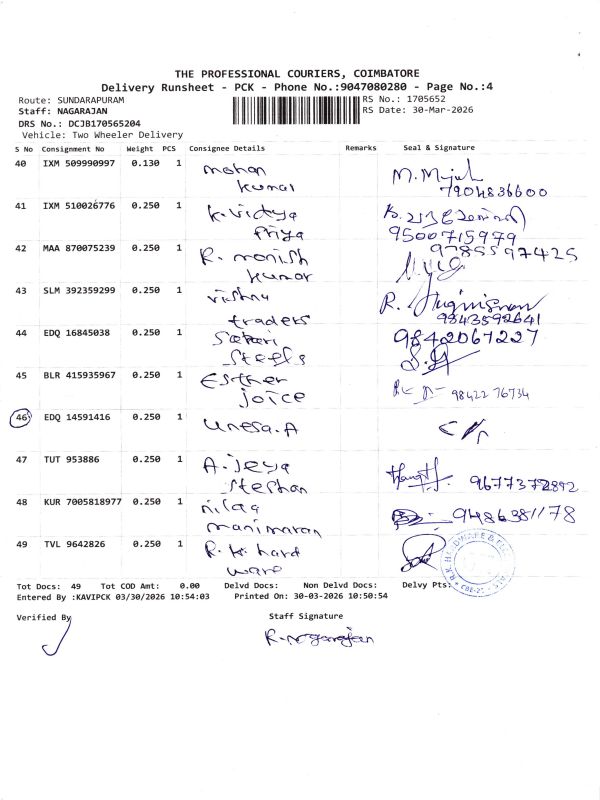 THE PROFESSIONAL COURIERS, COIMBATORE
Delivery Runsheet - PCK - Phone No.:9047080280 - Page No.:4
Route: SUNDARAPURAM
RS No.: 1705652
Staff: NAGARAJAN
RS Date: 30-Mar-2026
DRS No.: DCJB170565204
Vehicle: Two Wheeler Delivery
S No Consignment No Weight PCS Consignee Details Remarks Seal & Signature
40 IXM 509990997 0.130 1 mohan
kumar
7904836600
41 IXM 510026776 0.250 1 K. vidya
Priya
9500715979
42 MAA 870075239 0.250 1 R. monish 9785597425
kumar
43 SLM 392359299 0.250 1 vishnu
traders 9843592641
44 EDQ 16845038 0.250 1 9842067227
Steels
45 BLR 415935967 0.250 1 Esther
joice 98422 76734
46 EDQ 14591416 0.250 1
47 TUT 953886 0.250 1 A. jeya
Stephan 9677372892
48 KUR 7005818977 0.250 1 nilaa 9486381178
manimaran
49 TVL 9642826 0.250 1 R. K. hard
ware
Tot Docs: 49 Tot COD Amt: 0.00 Delvd Docs: Non Delvd Docs: Delvy Pts:
Entered By :KAVIPCK 03/30/2026 10:54:03 Printed On: 30-03-2026 10:50:54
Verified By Staff Signature
R. nagarajan